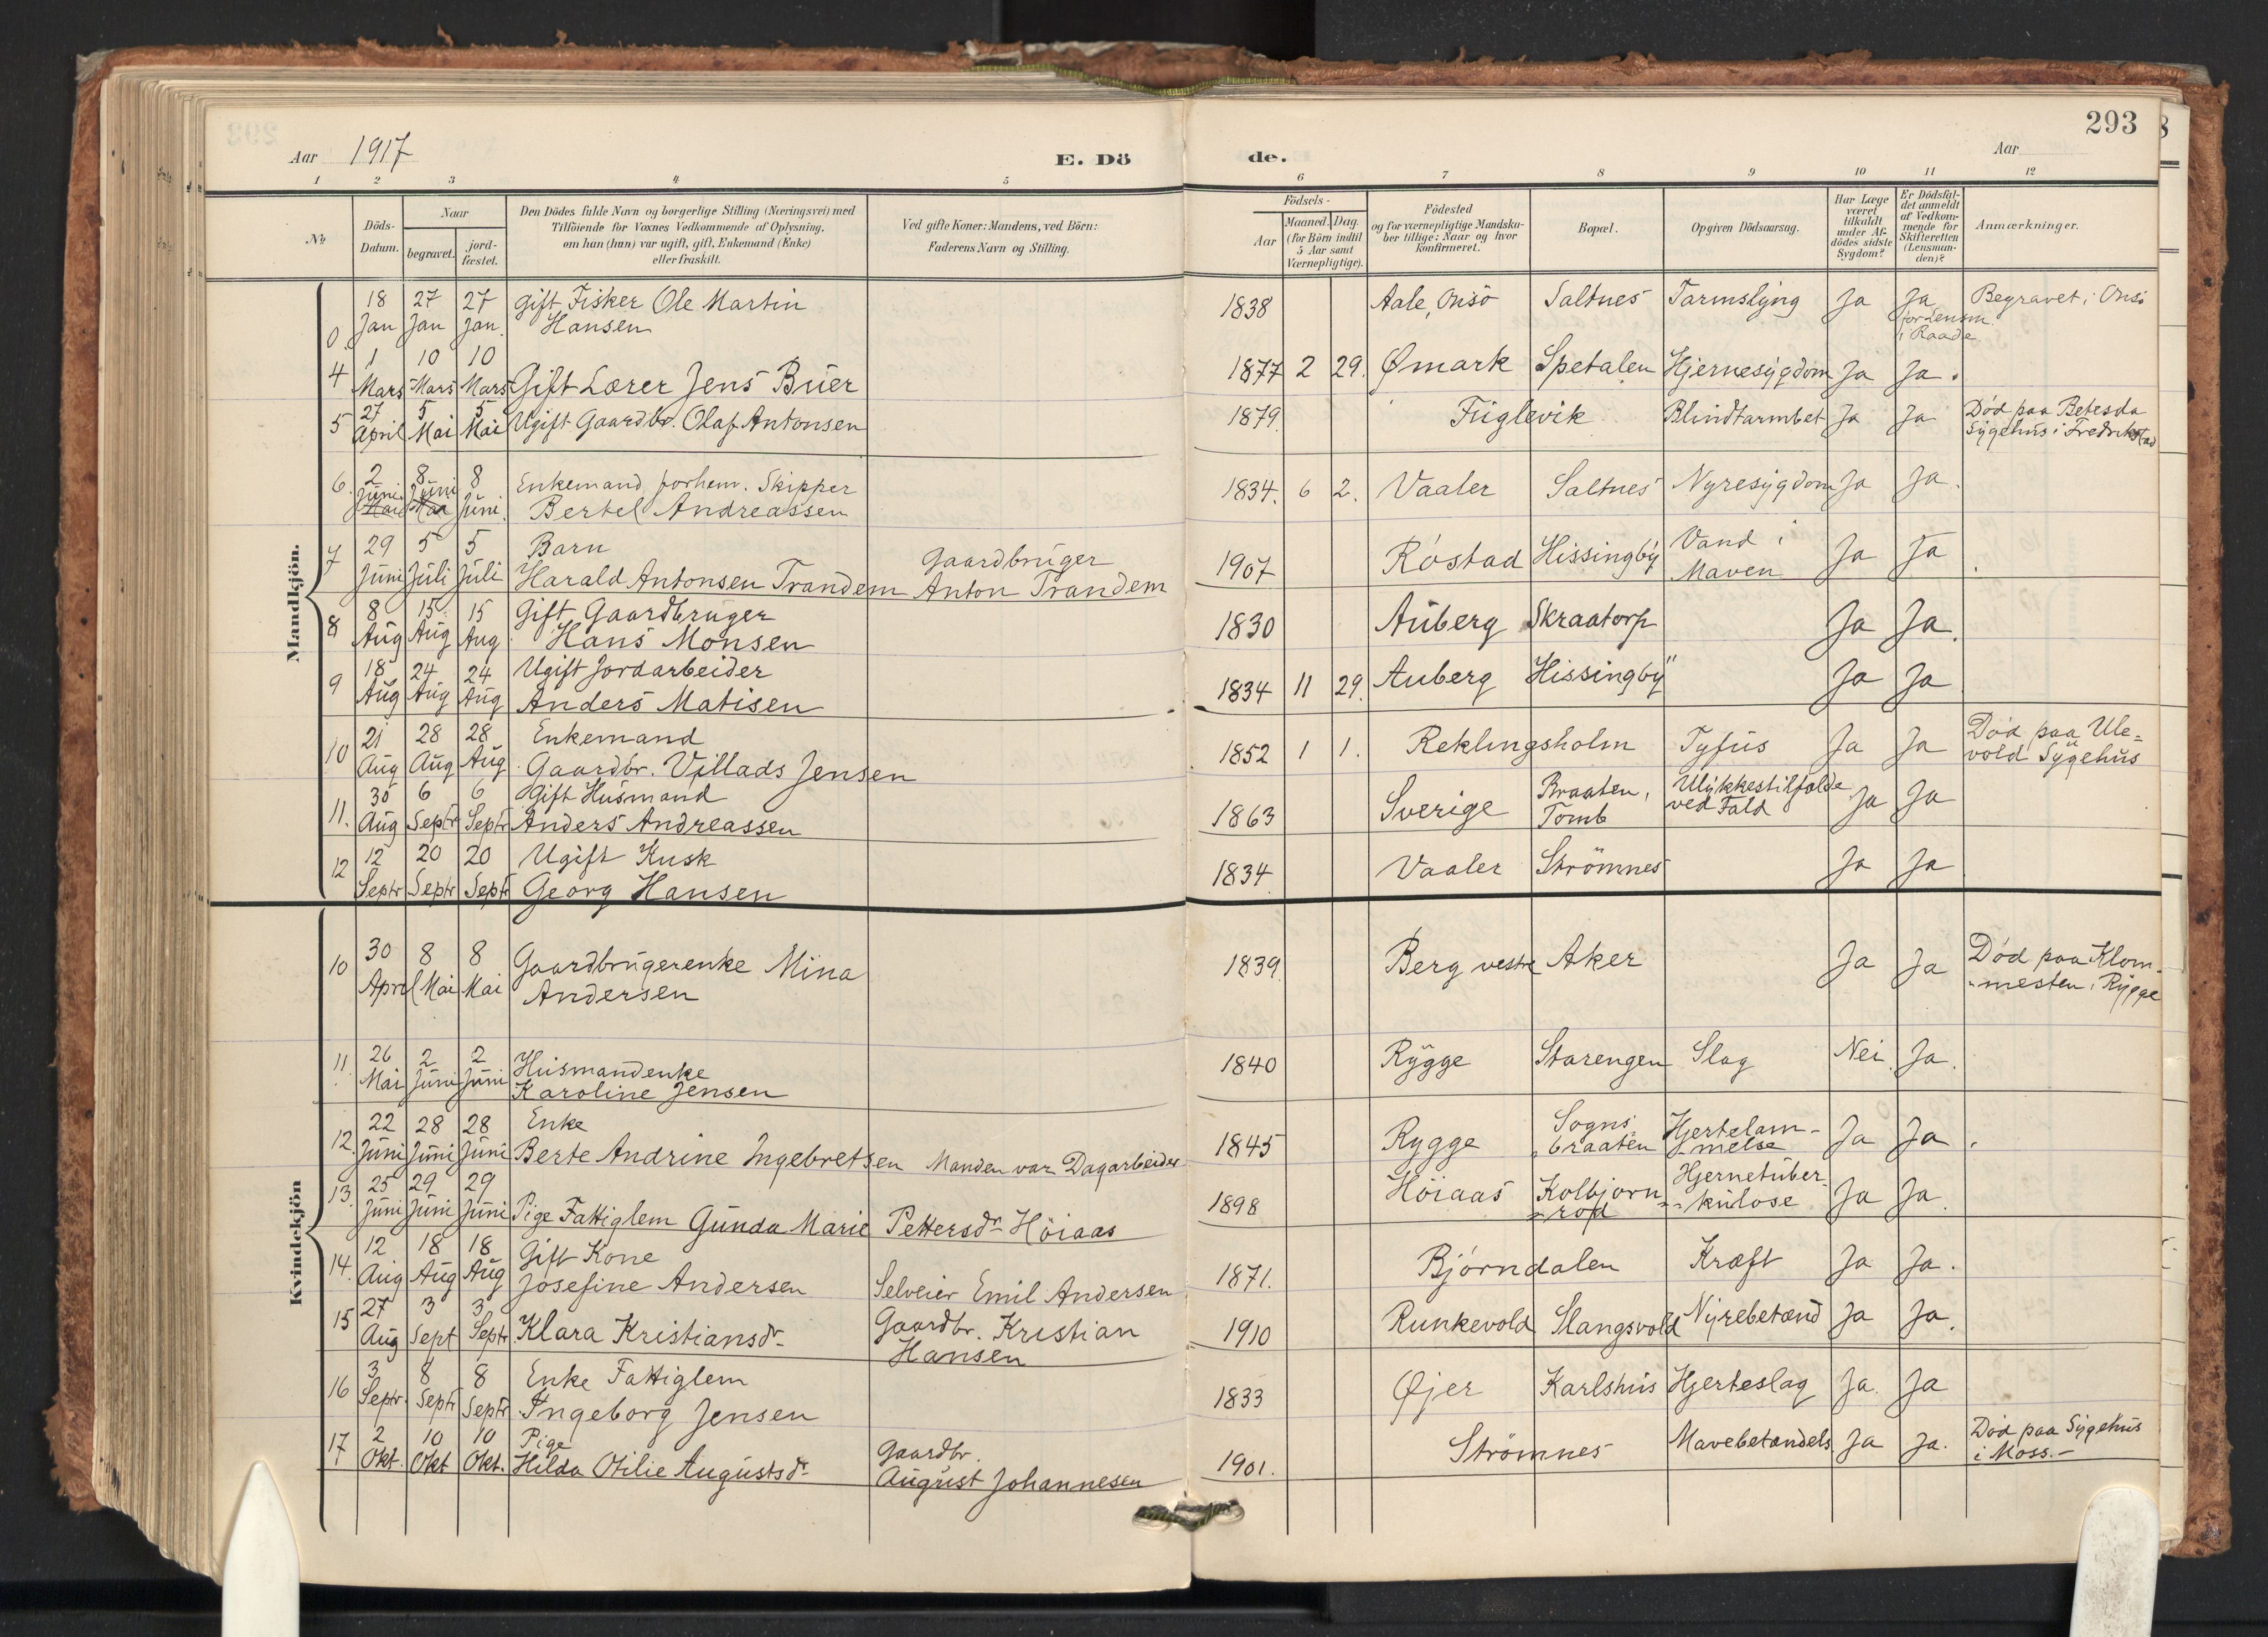 293
Aar 1917
E. Dö
de.
Aar
1 2 3 4 5 6 7 8 9 10 11 12
No
Döds-Datum.
Naar
begravet.
jord-fæstet.
Den Dödes fulde Navn og borgerlige Stilling (Næringsvei) med
Tilföiende for Voxnes Vedkommende af Oplysning,
om han (hun) var ugift, gift, Enkemand (Enke)
eller fraskilt.
Ved gifte Koner: Mandens, ved Börn:
Faderens Navn og Stilling.
Födsels-
Aar
Maaned. Dag.
(for Börn indtil
5 Aar samt
Værnepligtige).
Födested
og for værnepligtige Mandska-
ber tillige: Naar og hvor
konfirmeret.
Bopæl.
Opgiven Dödsaarsag.
Har Læge
været
tilkaldt
under Af-
dödes sidste
Sygdom?
Er Dödsfal-
det anmeldt
af Vedkom-
mende for
Skifteretten
(Lensman-
den)?
Anmærkninger.
Mandkjön.
0. 18 Jan 27 Jan 27 Jan. Gift Fisker Ole Martin
Hansen 1838 Aale, Onsö Saltnes Tarmslyng Ja Ja for Lensm. i Raade Begravet i Onsö
4 1 Mars 10 Mars 10 Mars Gift Lærer Jens Buer 1877 2 29. Ømark Spetalen Hjernesygdom Ja Ja.
5 27 April 5 Mai 5 Mai Ugift Gaardbr. Olaf Antonsen 1879. Fuglevik Blindtarmbet Ja Ja Död paa Betesda
Sygehus i Fredrikstad
6. 2 Juni Mai 8 Juni Mai 8 Juni. Enkemand forhenv. Skipper
Bertel Andreassen 1834. 6 2. Vaaler Saltnes Nyresygdom Ja Ja.
7 29 Juni 5 Juli 5 Juli Barn
Harald Antonsen Trandem Gaardbruger
Anton Trandem 1907 Röstad Hissingby Vand i
Maven Ja Ja
8 8 Aug 15 Aug 15 Aug Gift Gaardbruger
Hans Monsen 1830 Auberg Skraatorp Ja Ja.
9 18 Aug 24 Aug 24 Aug Ugift Jordarbeider
Anders Matisen 1834 11 29. Auberg Hissingby Ja Ja
10 21 Aug 28 Aug 28 Aug Enkemand
Gaardbr. Villads Jensen 1852 1 1. Reklingsholm Tyfus Ja Ja Död paa Ule=
vold Sygehus
11. 30 Aug 6 Septr 6 Septr Gift Husmand
Anders Andreassen 1863 Sverige Braaten,
Tomb Ulykkestilfælde
ved Fald Ja Ja
12 12 Septr 20 Septr 20 Septr Ugift Kusk
Georg Hansen 1834. Vaaler Strömnes Ja Ja
Kvindekjön
10 30 April 8 Mai 8 Mai Gaardbrugerenke Mina
Andersen 1839. Berg vestre Aker Ja Ja Död paa Klom-
mesten i Rygge
11. 26 Mai 2 Juni 2 Juni Husmandenke
Karoline Jensen 1840 Rygge Starengen Slag Nei Ja.
12. 22 Juni 28 Juni 28 Juni Enke
Berte Andrine Ingebretsen Manden var Dagarbeider 1845 Rygge Sogns-
braaten Hjertelam-
melse Ja Ja.
13. 25 Juni 29 Juni 29 Juni Pige Fattiglem Gunda Marie Pettersdr Höiaas 1898 Höiaas Kolbjorn-
röd Hjernetuber-
kulose Ja Ja.
14. 12 Aug 18 Aug 18 Aug Gift Kone
Josefine Andersen Selveier Emil Andersen 1871. Björndalen Kræft Ja Ja.
15 27 Aug 3 Sept 3 Septr Klara Kristiansdr Gaardbr. Kristian
Hansen 1910 Runkevold Slangsvold Nyrebetænd Ja Ja.
16 3 Septr. 8 Septr 8 Septr Enke Fattiglem
Ingeborg Jensen 1833 Øjer Karlshus Hjerteslag Ja. Ja
17 2 Okt. 10 Okt 10 Okt. Pige
Hilda Otilie Augustsdr Gaardbr.
August Johannesen 1901. Strömnes Mavebetændels Ja Ja. Död paa Sygehus
i Moss.-